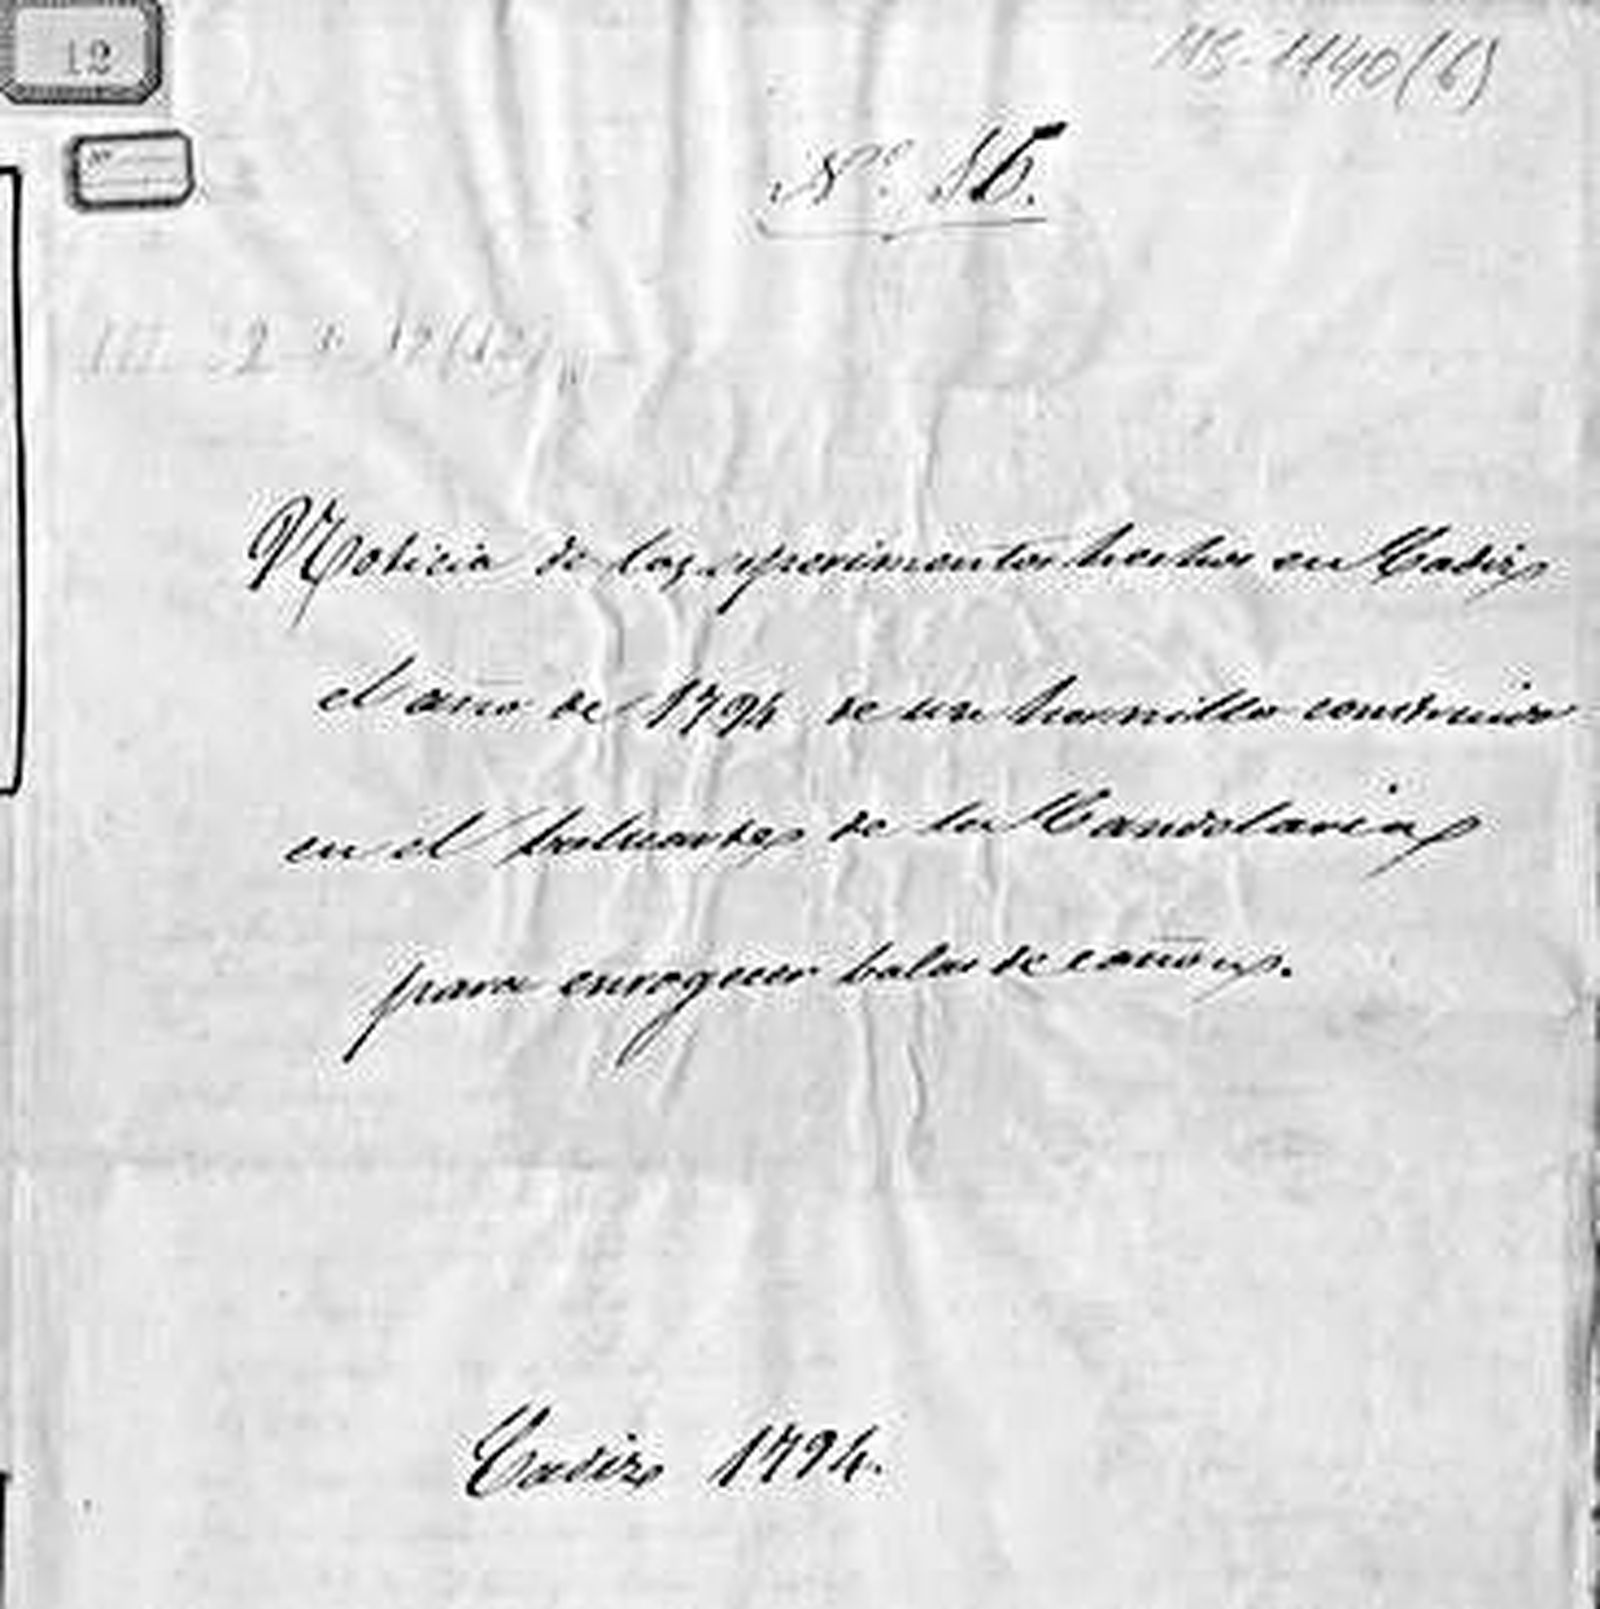 12
MS-1140(6)
Nº
Noticia de los experimentos hechos en Cadiz
el año de 1794 de un hornillo construido
en el baluarte de la Candelaria
para enrogecer balas de cañon.
Cadiz 1794.